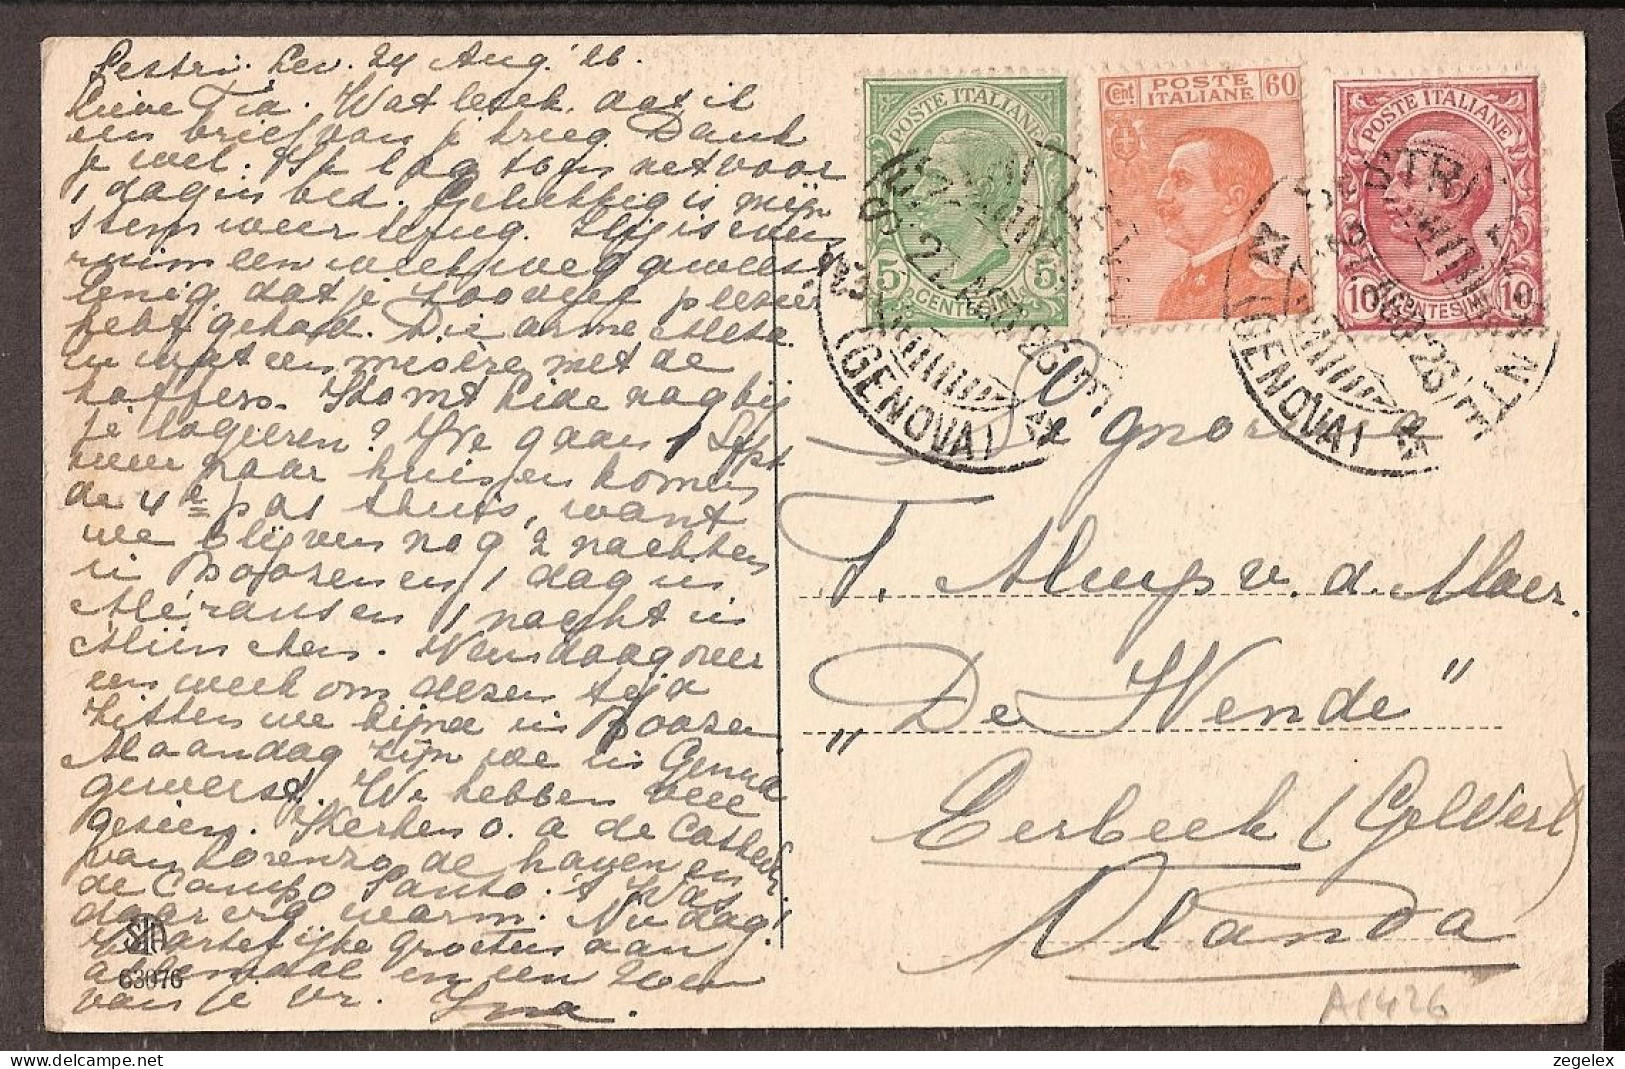 Sestri. Lev. 24 Aug. '26.
Lieve Tia. Wat leuk dat ik
een brief van je kreeg. Dank
je wel. Ik lag toen net voor
1 dag in bed. Gelukkig is mijn
stem weer terug. Zij is een
ruim een week weg geweest
enig, dat je zooveel plezier
hebt gehad. Die arme
en wat een misère met de
koffers. Komt Lide nog bij
je logeeren? We gaan 1 Sept
weer naar huis en komen
de 4e pas thuis, want
we blijven nog 2 nachten
in Boozen en 1 dag in
Meransen 1 nacht in
München. Vandaag over
een week om dezen tijd
zitten we bijna in Boozen
Maandag zijn we in Genua
geweest. We hebben veel
gezien. Kerken o. a de Cathedr.
van Lorenzo de haven en
de Campo Santo. 't Was
daar erg warm. Nu dag!
Hartelijke groeten aan
allemaal en een zoen
van je vr. Ina.
STA
63076
POSTE ITALIANE
5 CENTESIMI 5
Cent. POSTE ITALIANE 60
POSTE ITALIANE
10 CENTESIMI 10
SESTRI LEVANTE
(GENOVA)
(GENOVA)
Signorina
T. Muys v. d. Moer.
"De Wende"
Eerbeek (Gelderl)
Olanda
A1426
zegelex